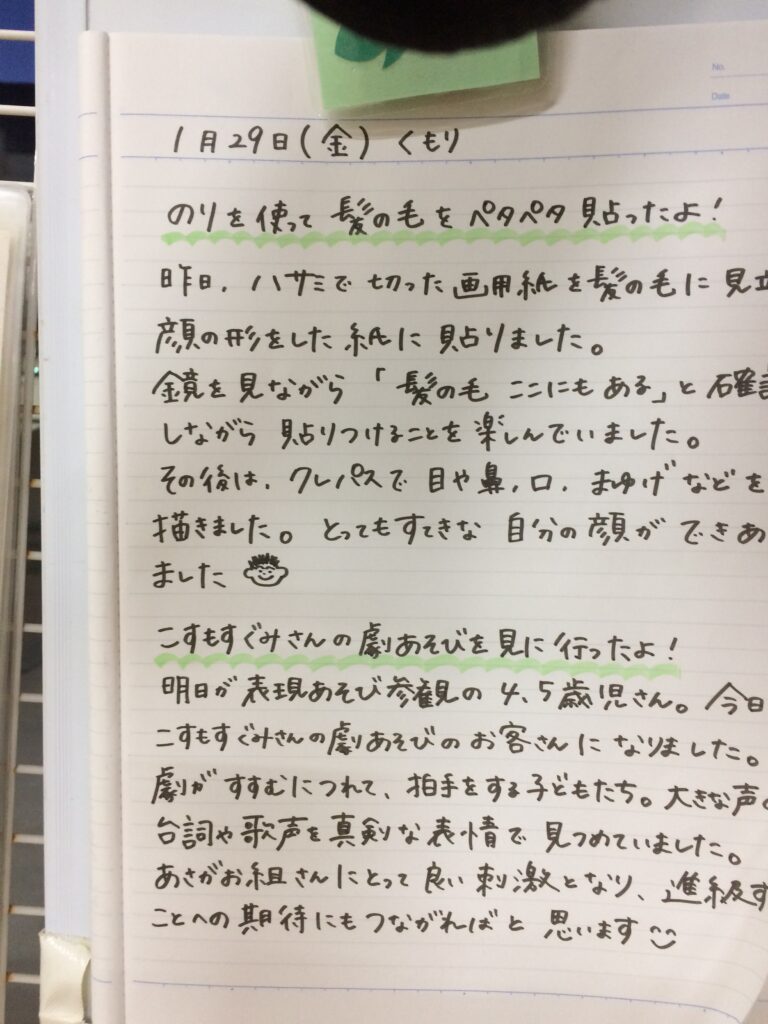 No.
Date
1月29日(金) くもり
のりを使って 髪の毛を ペタペタ 貼ったよ！
昨日、ハサミで 切った 画用紙を髪の毛に 見立
顔の形をした 紙に 貼りました。
鏡を見ながら 「髪の毛 ここにも ある」と 確認
しながら 貼りつけることを 楽しんでいました。
その後は、クレパスで 目や鼻、口、まゆげ などを
描きました。 とっても すてきな 自分の顔が できあ
ました
こすもすぐみさんの 劇あそびを 見に 行ったよ！
明日が 表現あそび 参観の 4、5歳児さん。 今日
こすもすぐみさんの劇あそびの お客さんに なりました。
劇が すすむにつれて、拍手をする子どもたち。 大きな声
台詞や歌声を 真剣な 表情で 見つめていました。
あさがお組さんにとって 良い 刺激となり、進級す
ことへの 期待にも つながればと 思います